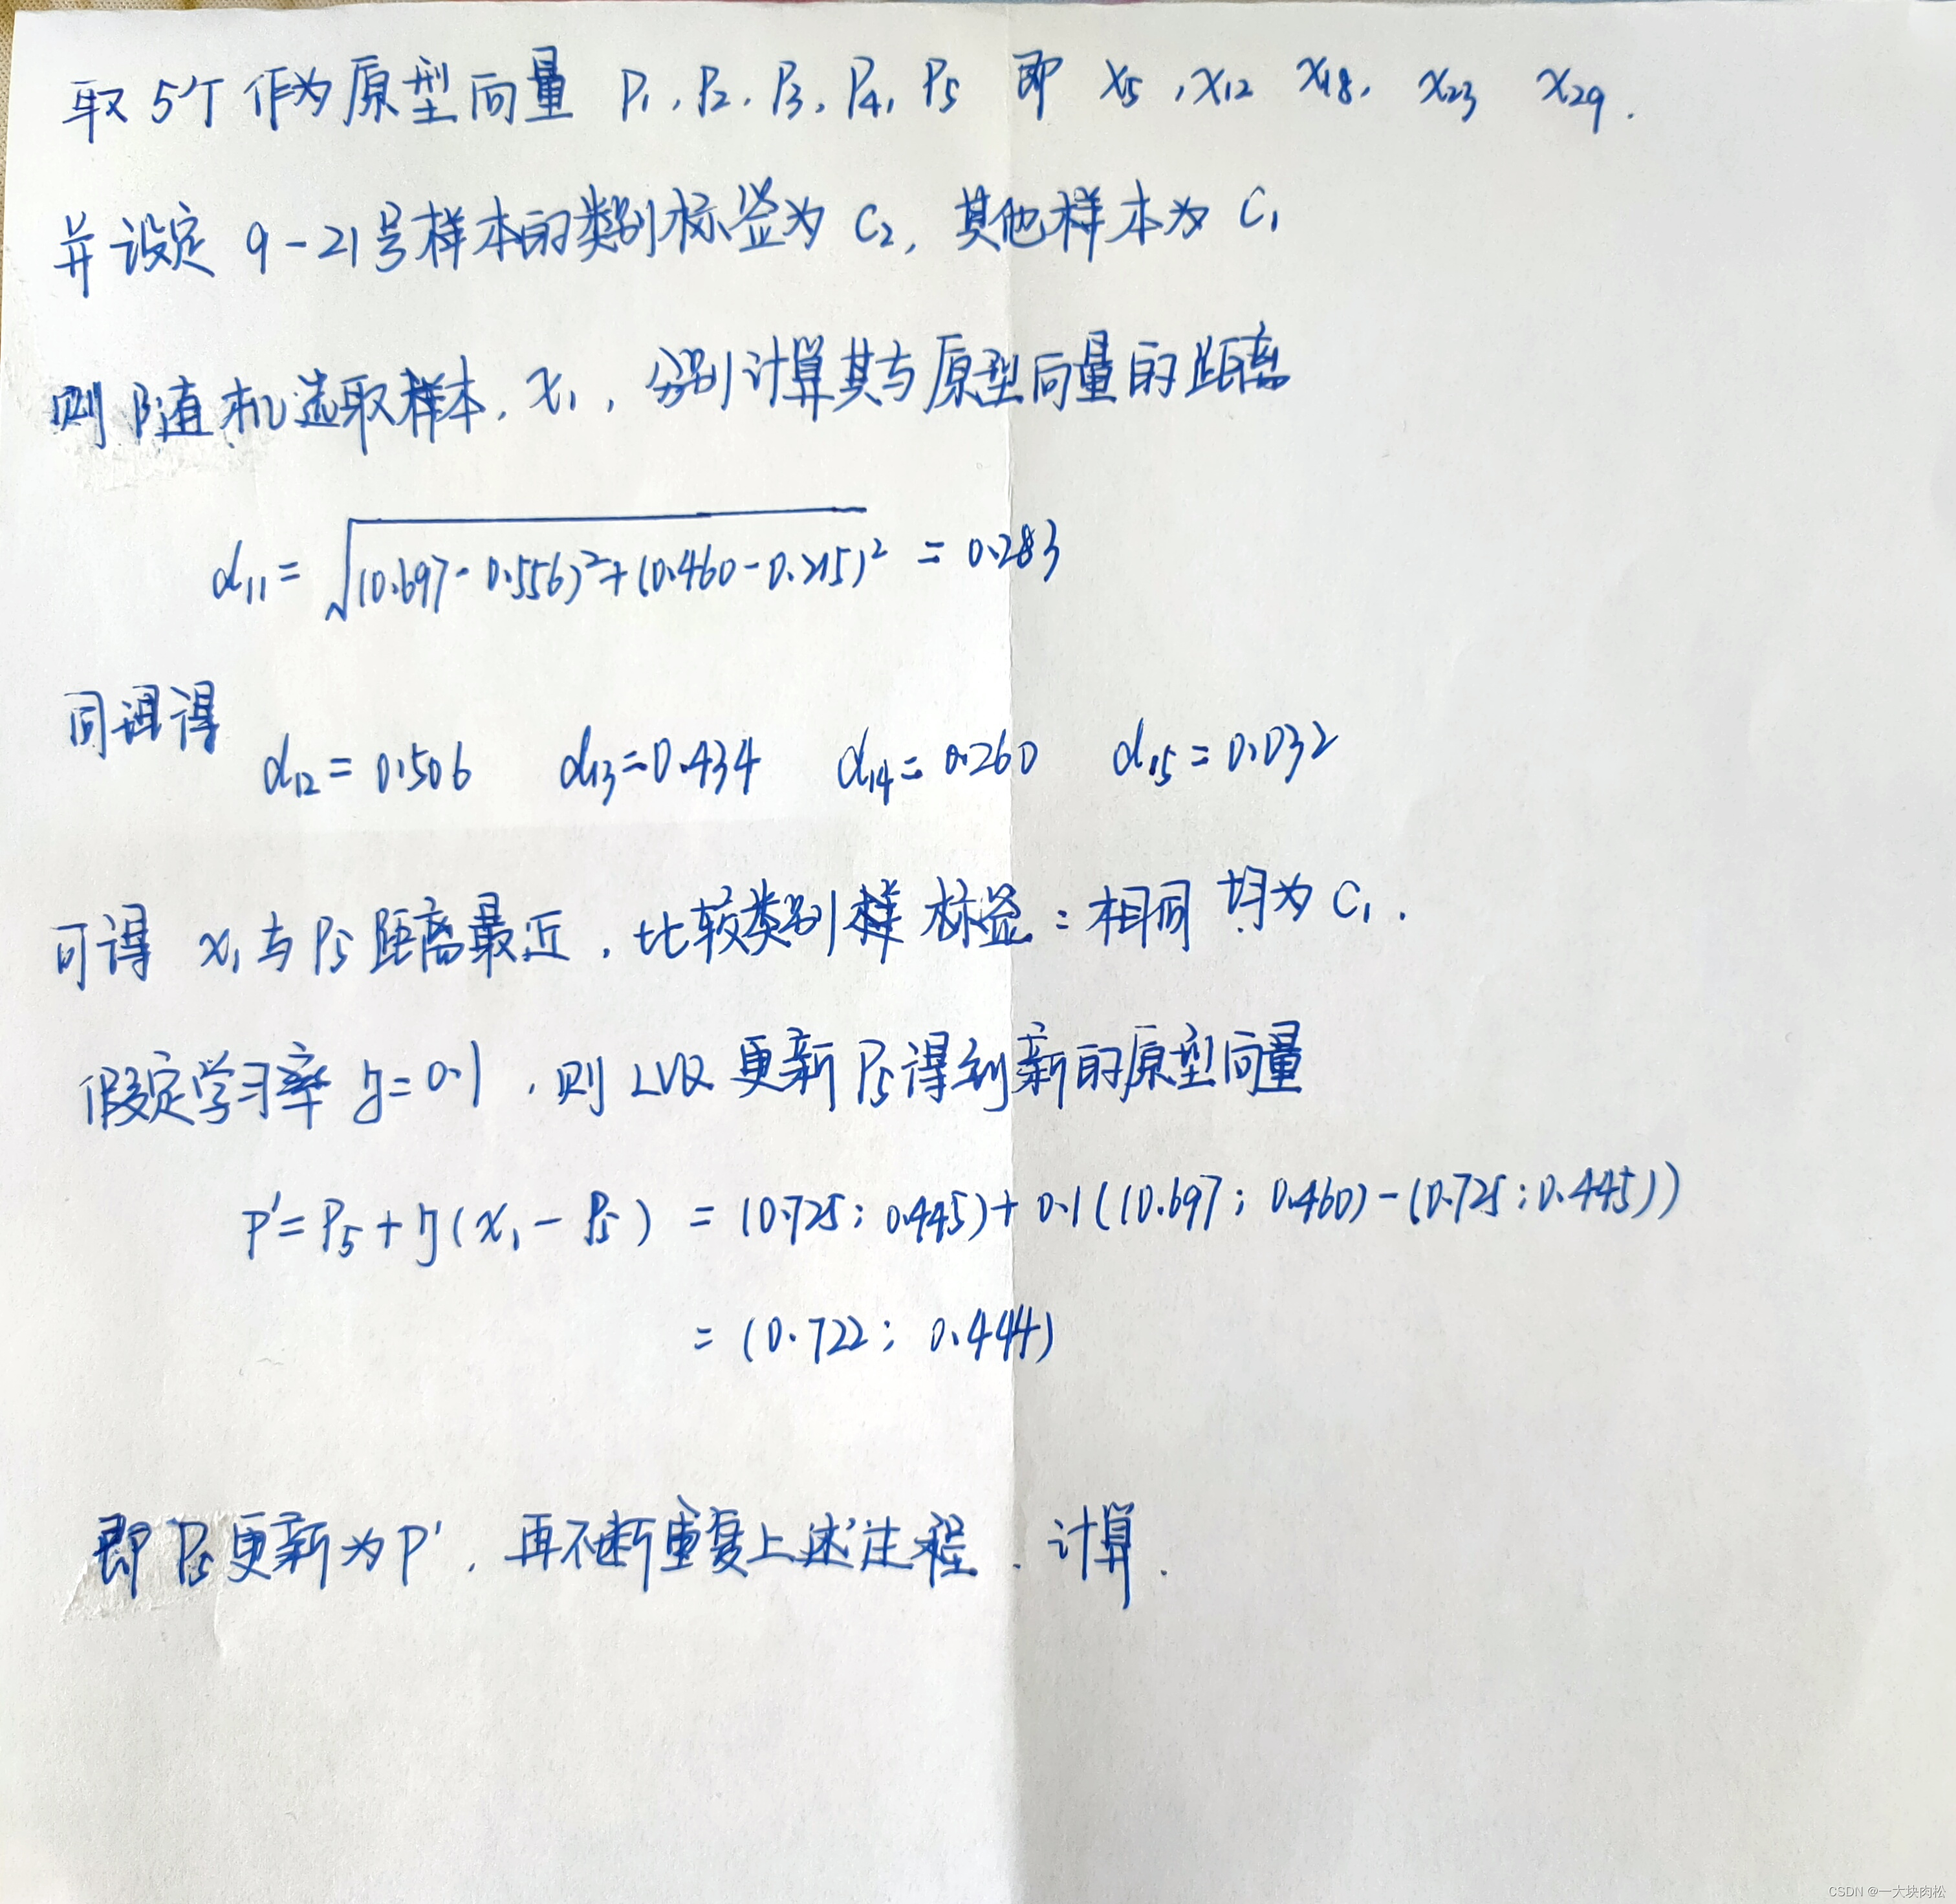 取5个作为原型向量 P₁, P₂, P₃, P₄, P₅ 即 x₅, x₁₂ x₁₈, x₂₃ x₂₉.
并设定 9-21号样本的类别标签为 C₂, 其他样本为 C₁
则随机选取样本, x₁, 分别计算其与原型向量的距离
d₁₁ = √(0.697-0.556)²+(0.460-0.215)² = 0.283
同理得
d₁₂ = 0.506 d₁₃ = 0.434 d₁₄ = 0.260 d₁₅ = 0.032
可得 x₁与P₅距离最近, 比较类别样标签: 相同 均为 C₁.
假定学习率 η=0.1, 则 LVQ 更新P₅得到新的原型向量
P'= P₅ + η(x₁ - P₅) = (0.725; 0.445) + 0.1((0.697; 0.460) - (0.725; 0.445))
= (0.722; 0.444)
即 P₅更新为P', 再不断重复上述过程. 计算.
CSDN @一大块肉松